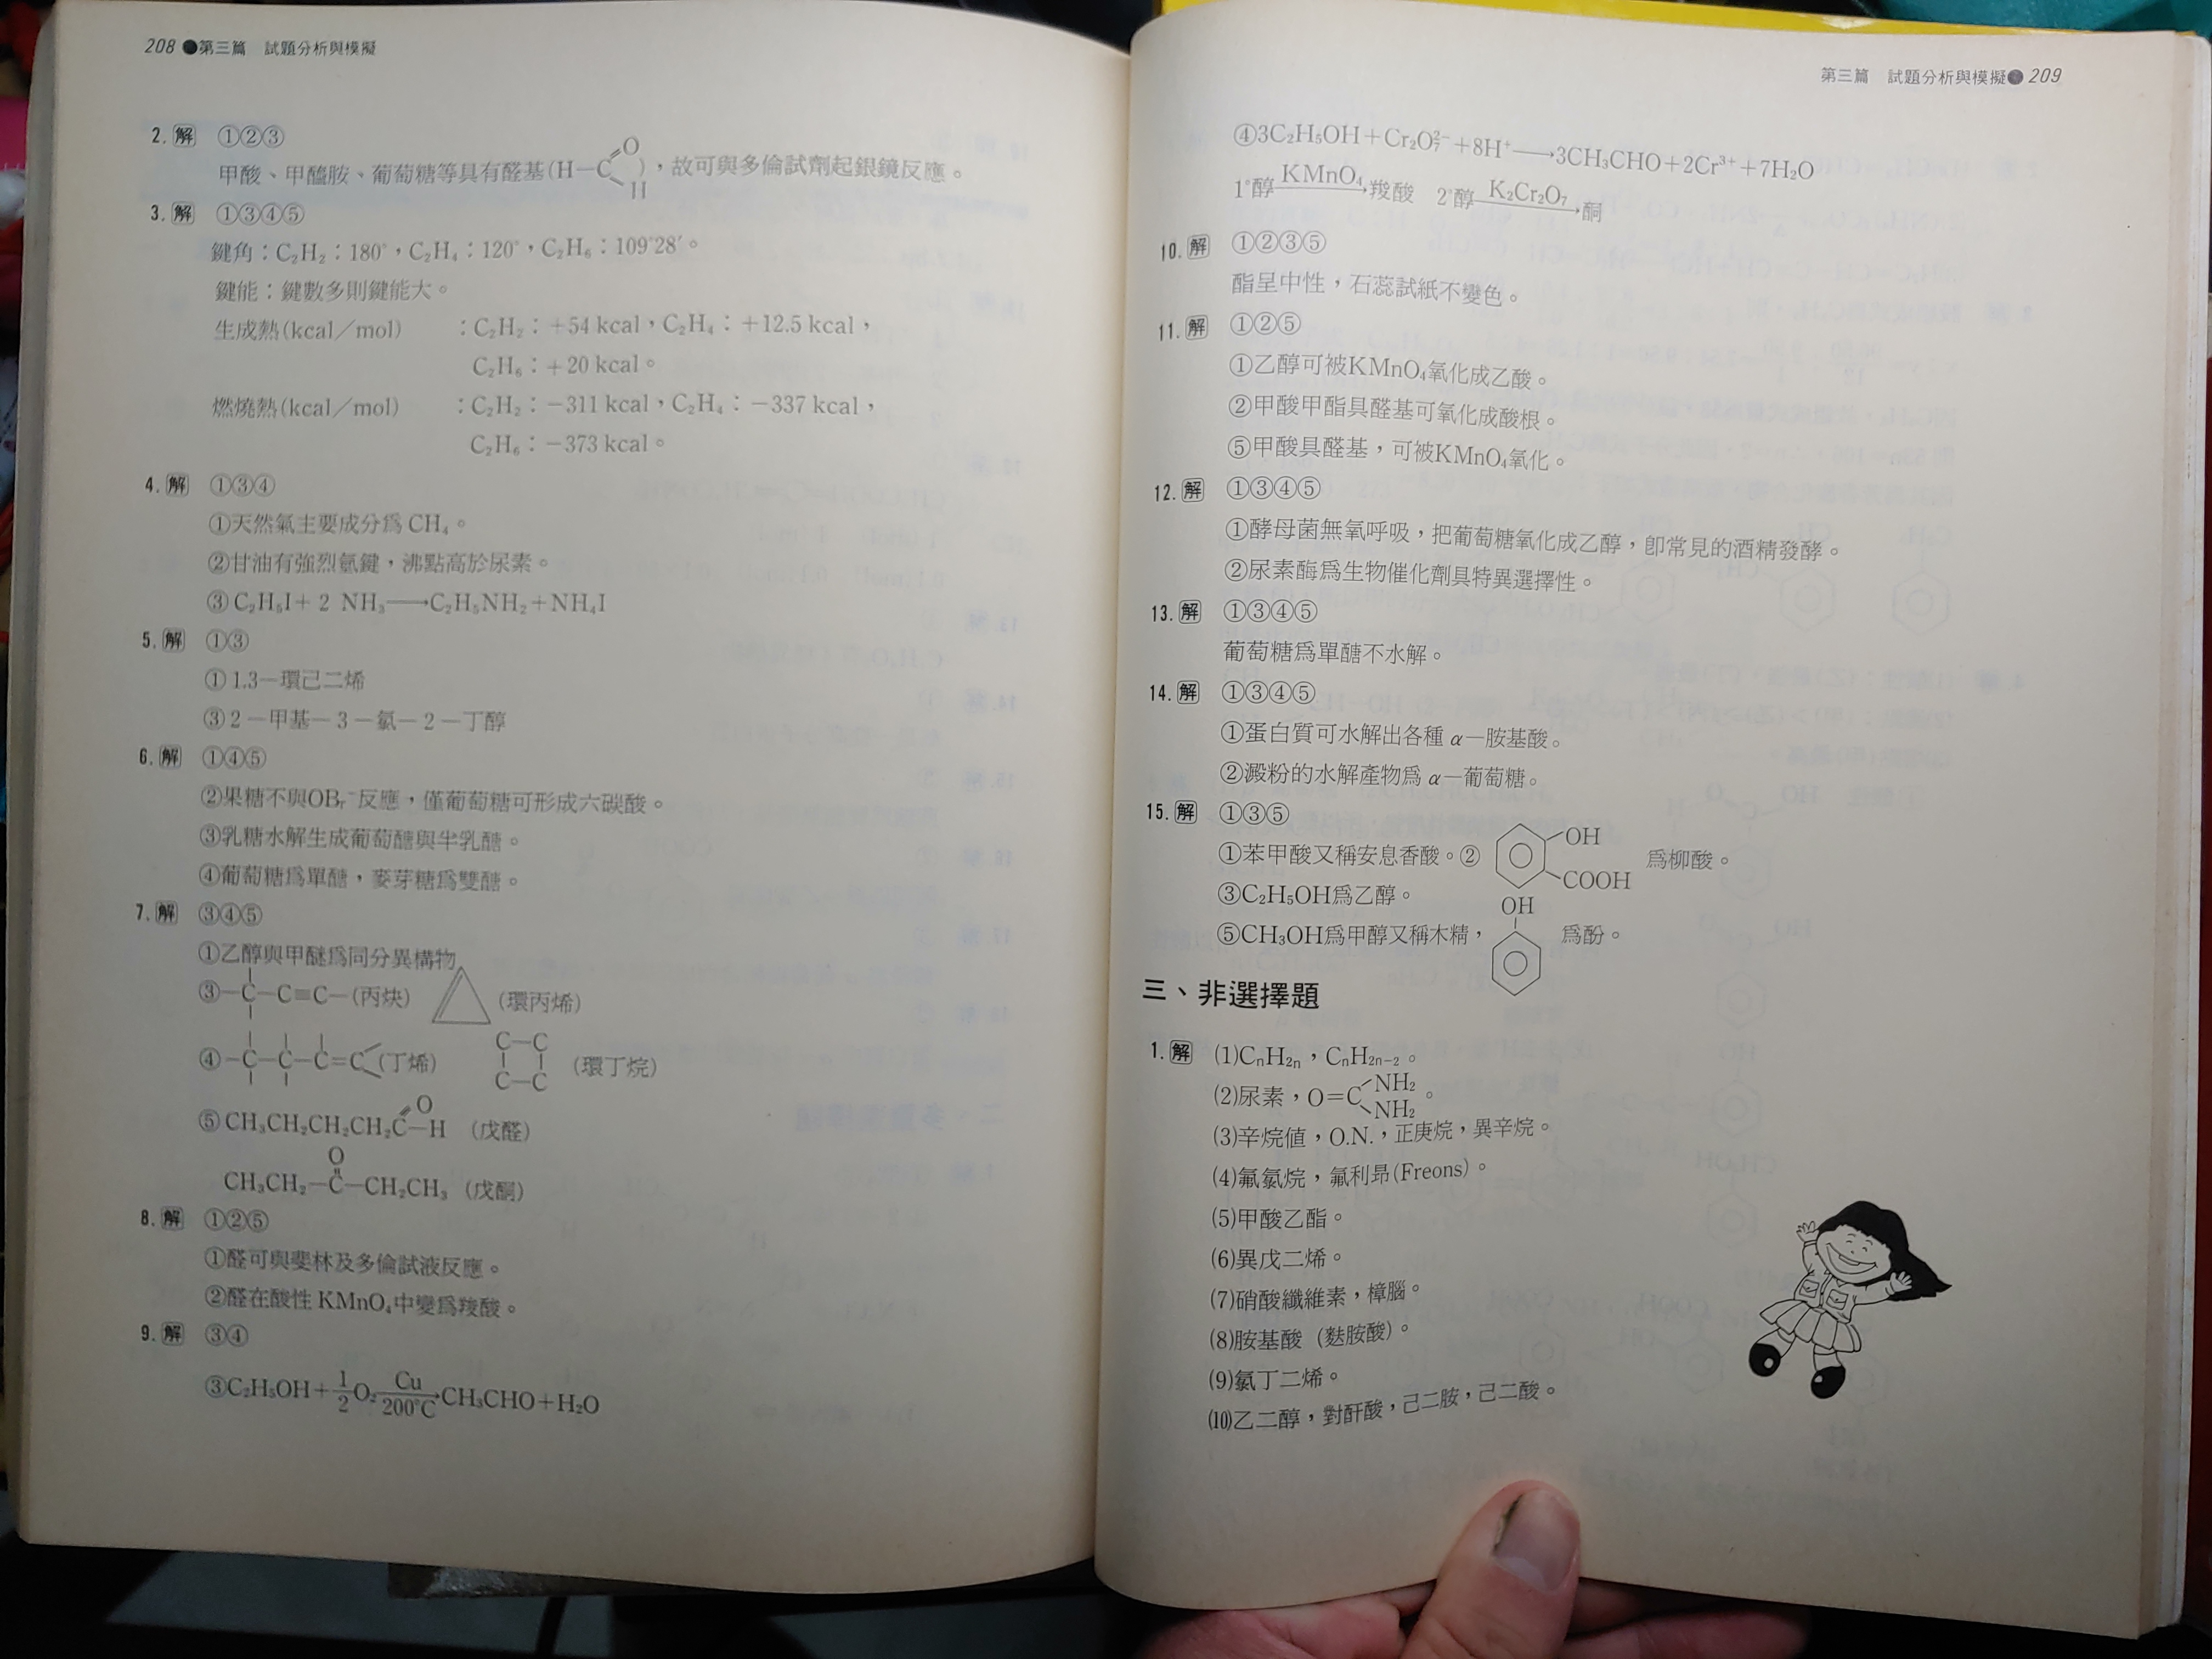 208 ●第三篇　試題分析與模擬
2. 解 ①②③
甲酸、甲醯胺、葡萄糖等具有醛基(H－C O H)，故可與多倫試劑起銀鏡反應。
3. 解 ①③④⑤
鍵角：C₂H₂：180°，C₂H₄：120°，C₂H₆：109°28′。
鍵能：鍵數多則鍵能大。
生成熱(kcal／mol)　：C₂H₂：+54 kcal，C₂H₄：+12.5 kcal，
C₂H₆：+20 kcal。
燃燒熱(kcal／mol)　：C₂H₂：−311 kcal，C₂H₄：−337 kcal，
C₂H₆：−373 kcal。
4. 解 ①③④
①天然氣主要成分爲 CH₄。
②甘油有強烈氫鍵，沸點高於尿素。
③ C₂H₅I+ 2 NH₃⟶C₂H₅NH₂+NH₄I
5. 解 ①③
① 1.3－環己二烯
③ 2 －甲基－ 3 －氯－ 2 －丁醇
6. 解 ①④⑤
②果糖不與OBr⁻反應，僅葡萄糖可形成六碳酸。
③乳糖水解生成葡萄醣與半乳醣。
④葡萄糖爲單醣，麥芽糖爲雙醣。
7. 解 ③④⑤
①乙醇與甲醚爲同分異構物
③－C－C≡C－(丙炔)　(環丙烯)
④－C－C－C=C＜(丁烯)　C－C C－C　(環丁烷)
⑤ CH₃CH₂CH₂CH₂C－H O　(戊醛)
O
CH₃CH₂－C－CH₂CH₃　(戊酮)
8. 解 ①②⑤
①醛可與斐林及多倫試液反應。
②醛在酸性 KMnO₄中變爲羧酸。
9. 解 ③④
③C₂H₅OH+1/2 O₂ Cu 200℃→CH₃CHO+H₂O
第三篇　試題分析與模擬● 209
④3C₂H₅OH+Cr₂O₇²⁻+8H⁺⟶3CH₃CHO+2Cr³⁺+7H₂O
1°醇 KMnO₄→羧酸　2°醇 K₂Cr₂O₇→酮
10. 解 ①②③⑤
酯呈中性，石蕊試紙不變色。
11. 解 ①②⑤
①乙醇可被KMnO₄氧化成乙酸。
②甲酸甲酯具醛基可氧化成酸根。
⑤甲酸具醛基，可被KMnO₄氧化。
12. 解 ①③④⑤
①酵母菌無氧呼吸，把葡萄糖氧化成乙醇，卽常見的酒精發酵。
②尿素酶爲生物催化劑具特異選擇性。
13. 解 ①③④⑤
葡萄糖爲單醣不水解。
14. 解 ①③④⑤
①蛋白質可水解出各種 α－胺基酸。
②澱粉的水解產物爲 α－葡萄糖。
15. 解 ①③⑤
①苯甲酸又稱安息香酸。② OH COOH 爲柳酸。
③C₂H₅OH爲乙醇。
⑤CH₃OH爲甲醇又稱木精， OH 爲酚。
三、非選擇題
1. 解 (1)CₙH₂ₙ，CₙH₂ₙ₋₂。
(2)尿素，O=C NH₂ NH₂。
(3)辛烷値，O.N.，正庚烷，異辛烷。
(4)氟氯烷，氟利昂(Freons)。
(5)甲酸乙酯。
(6)異戊二烯。
(7)硝酸纖維素，樟腦。
(8)胺基酸（麩胺酸）。
(9)氯丁二烯。
(10)乙二醇，對酐酸，己二胺，己二酸。